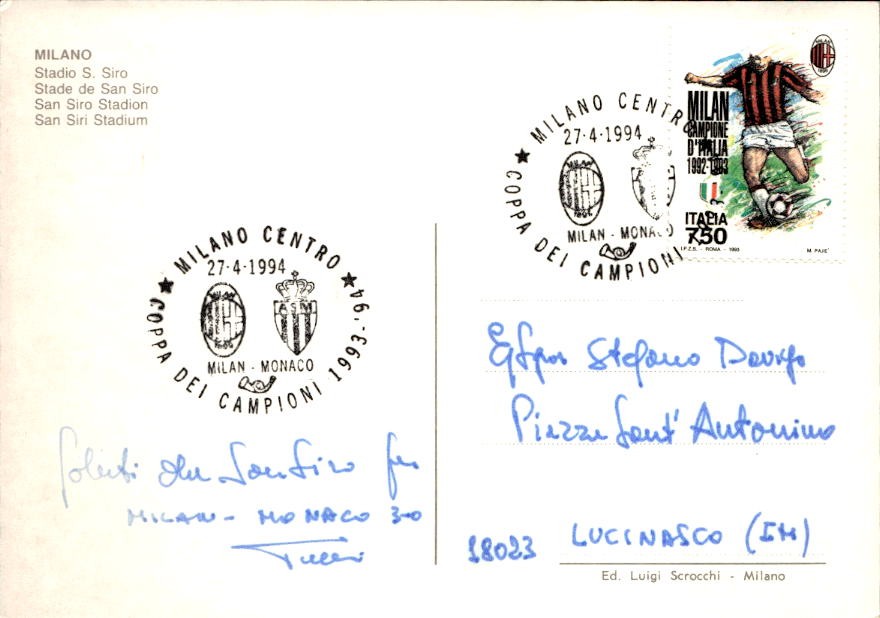 MILANO
Stadio S. Siro
Stade de San Siro
San Siro Stadion
San Siri Stadium
MILANO CENTRO
27-4-1994
MILAN
1899
ASM
MILAN - MONACO
COPPA DEI CAMPIONI 1993-'94
Saluti da San Siro per
MILAN - MONACO 3-0
MILANO CENTRO
27-4-1994
MILAN - MONACO
COPPA DEI CAMPIONI
MILAN
CAMPIONE
D'ITALIA
1992-1993
ITALIA
750
I.P.Z.S. - ROMA - 1993
M. PAJE'
Stefano
Piazza Sant' Antonino
18023 LUCINASCO (IM)
Ed. Luigi Scrocchi - Milano